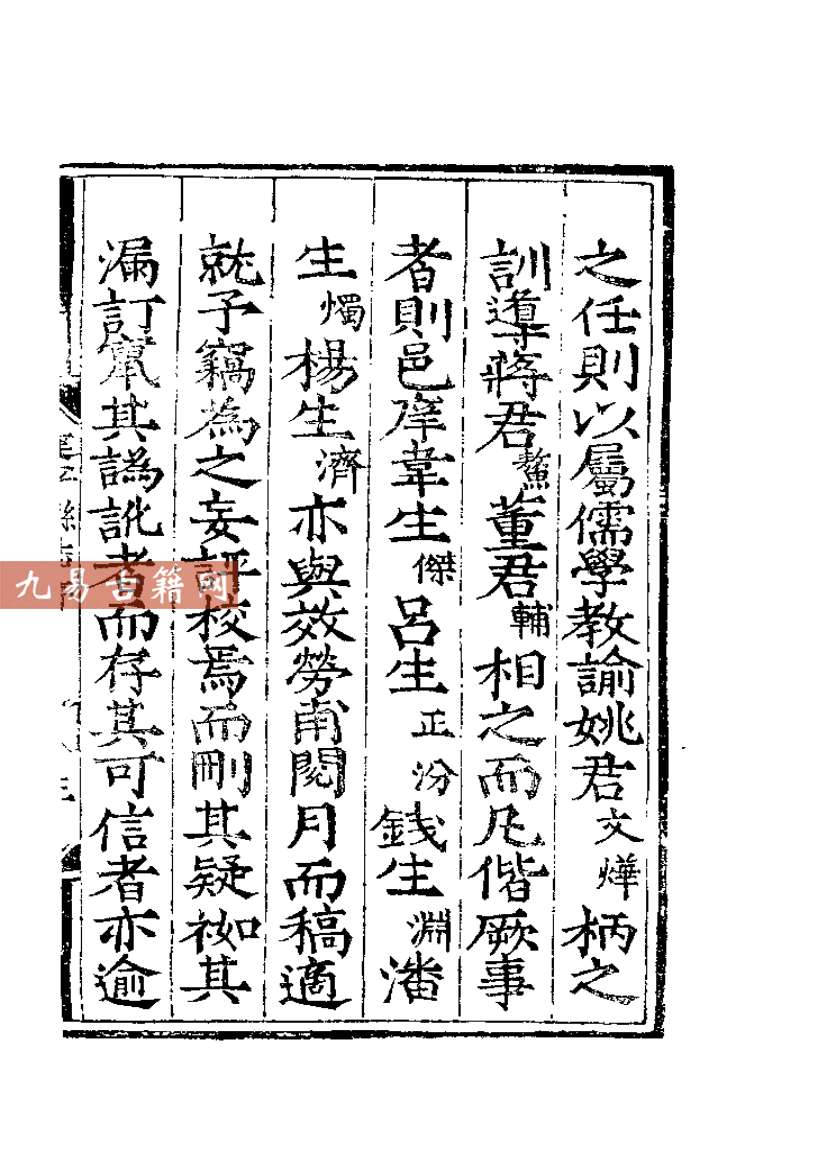 之任則以屬儒學教諭姚君文燁柄之
訓導蔣君鰲董君輔相之而凡偕厥事
者則邑庠韋生傑呂生正汾錢生淵潘
生燭楊生濟亦與效勞甫閱月而稿適
就予竊為之妄評校焉而刪其疑補其
漏訂竄其譌訛者而存其可信者亦逾
縣志
九易古籍网